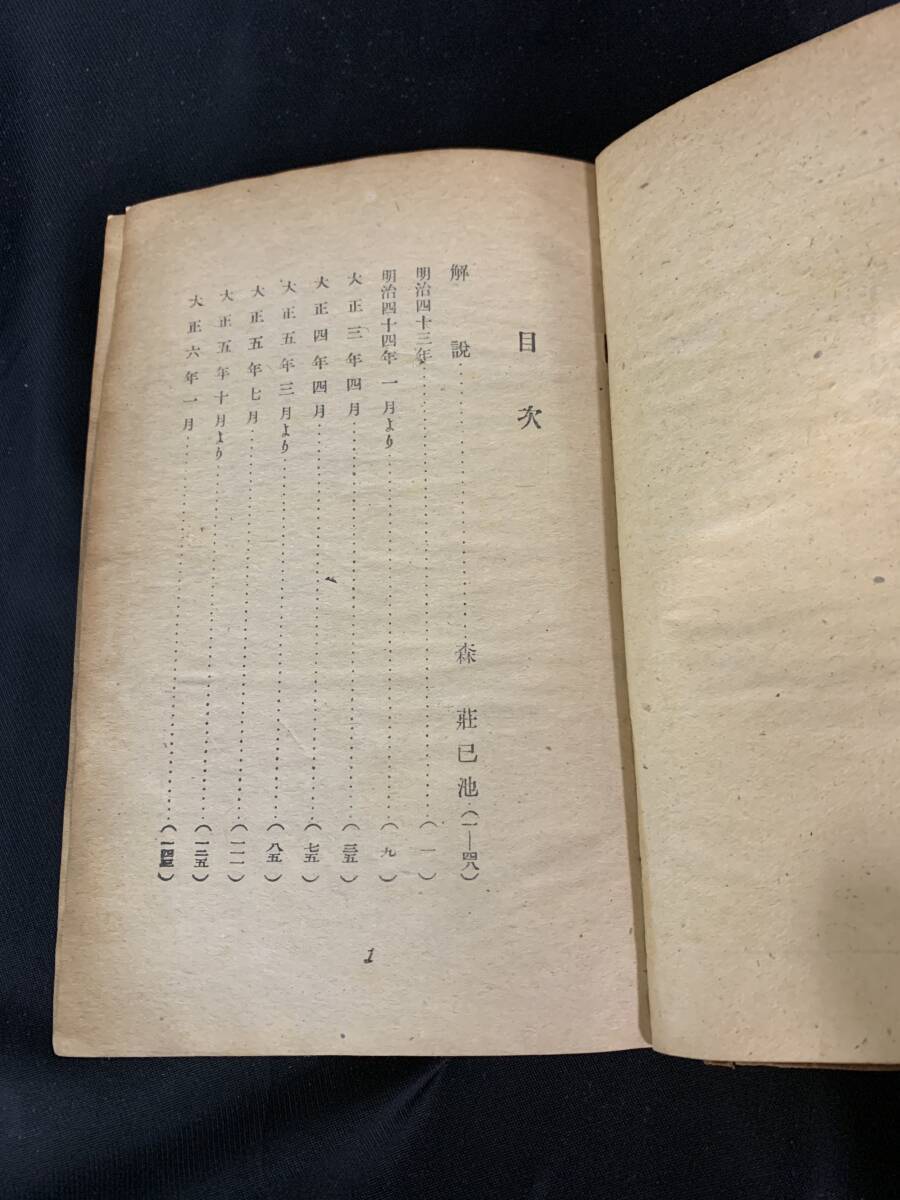 目次
解説……………………森 莊已池(一—四八)
明治四十三年……………………(一)
明治四十四年一月より……………………(九)
大正三年四月……………………(三五)
大正四年四月……………………(七五)
大正五年三月より……………………(八五)
大正五年七月……………………(一一一)
大正五年十月より……………………(一二五)
大正六年一月……………………(一四三)
1